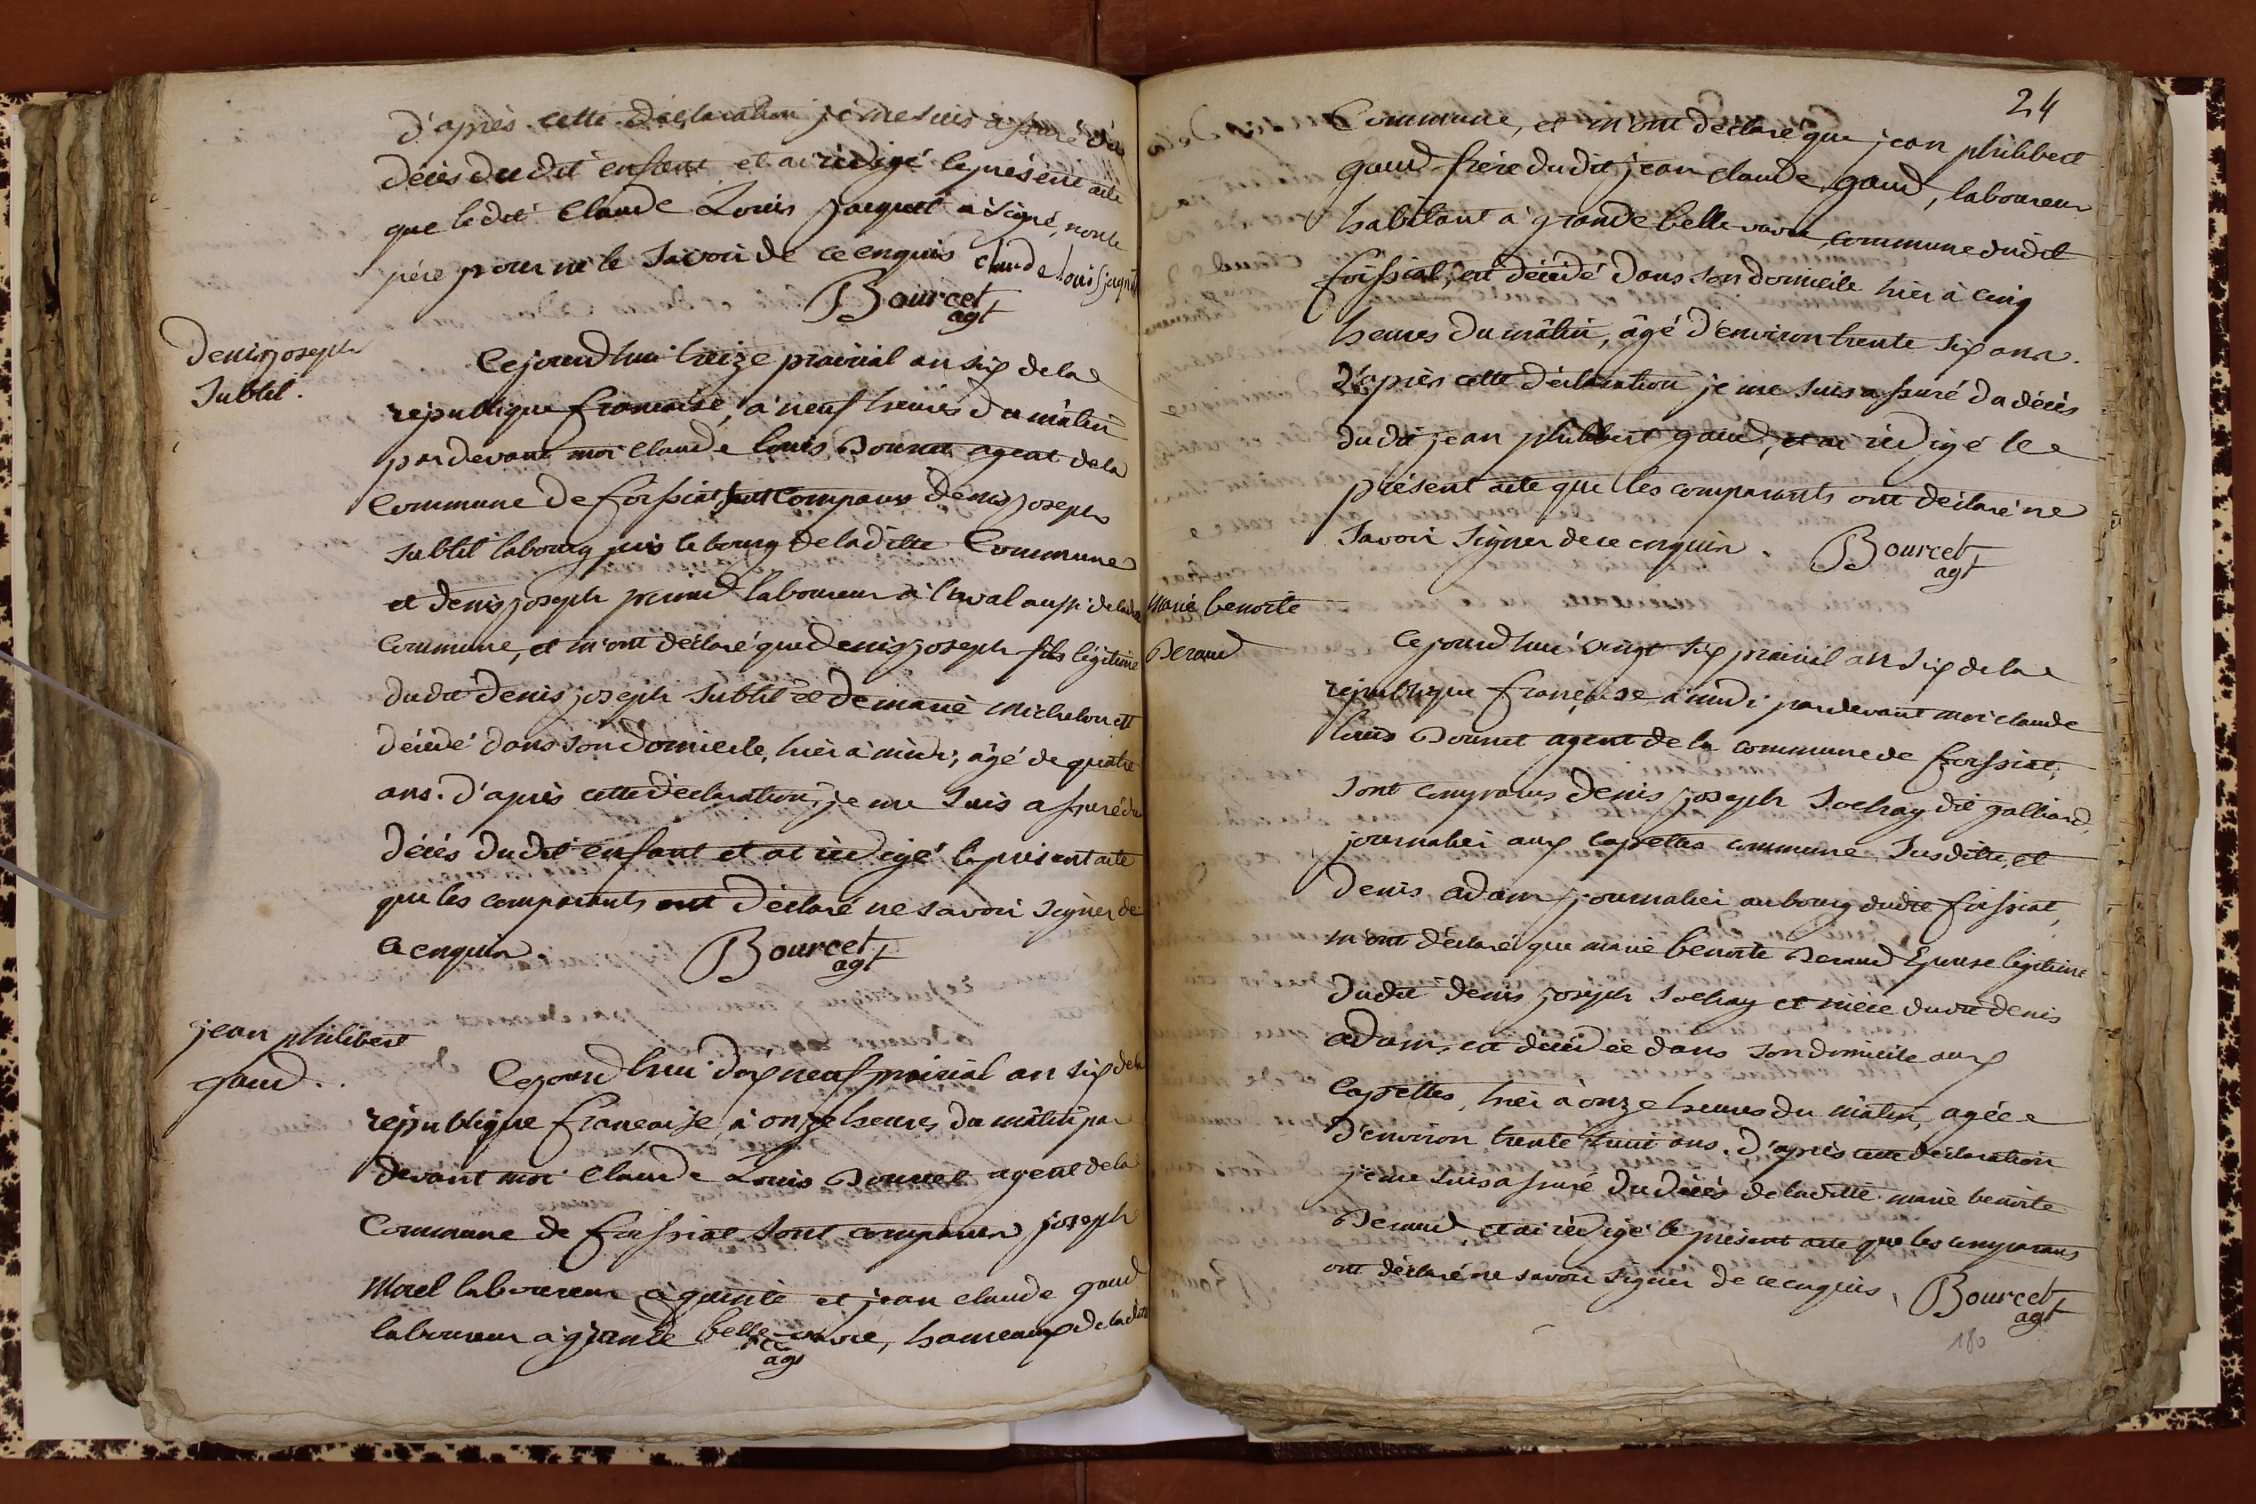 d'après cette déclaration je me suis assuré du
décès du dit enfant et ai rédigé le présent acte
que le dit Claude Louis jaquet a signé, non le
père pour ne le savoir de ce enquis claude louis jaquet
Bourcet
agt
denis joseph
Subtil.
Cejourd'hui treize prairial an six de la
république francaise, à neuf heures du mâtin
pardevant moi Claude Louis agent de la
Commune de foissiat sont comparus denis joseph
subtil près le bourg de la ditte Commune
et denis joseph laboureur à l'aval aussi de ladte
Commune, et m'ont déclaré que denis joseph fils légitime
dudit denis joseph subtil et de marie michelon est
décédé dans son domicile, hier à midi, âgé de quatre
ans. d'après cette déclaration, je me suis assuré du
décès dudit enfant et ai rédigé le présent acte
que les comparants ont déclaré ne savoir signer de
ce enquis
Bourcet
agt
jean philibert
gaud.
Cejourd'hui dix neuf prairial an six de la
république francaise, à onze heures du mâtin par
devant moi Claude Louis agent de la
Commune de foissiat sont comparus joseph
Morel laboureur à et jean claude gaud
laboureur à grande belle vavre, hameaux de la dite
agt
24
Commune, et m'ont déclaré que jean philibert
gaud frère dudit jean claude gaud, laboureur
habitant à grande belle vavre commune dudit
foissiat, est décédé dans son domicile hier à cinq
heures du mâtin, âgé d'environ trente six ans.
d'après cette déclaration je me suis assuré du décès
du dit jean philibert gaud, et ai rédigé le
présent acte que les comparants ont déclaré ne
savoir signer de ce enquis.
Bourcet
agt
marie benoite
Cejourd'hui vingt six prairial an six de la
république française à midi pardevant moi claude
louis agent de la commune de foissiat,
sont comparus denis joseph dit galliand,
journalier aux capettes commune susditte, et
denis adam journalier au bourg dudit foissiat,
m'ont déclaré que marie benoite Epouse légitime
dudit denis joseph et mère dudit denis
adam, est décédée dans son domicile aux
Capettes, hier à onze heures du mâtin, agée
d'environ trente huit ans. d'après cette déclaration
je me suis assuré du décès de la ditte marie benoite
et ai rédigé le présent acte que les comparans
ont déclaré ne savoir signer de ce enquis.
Bourcet
agt
180